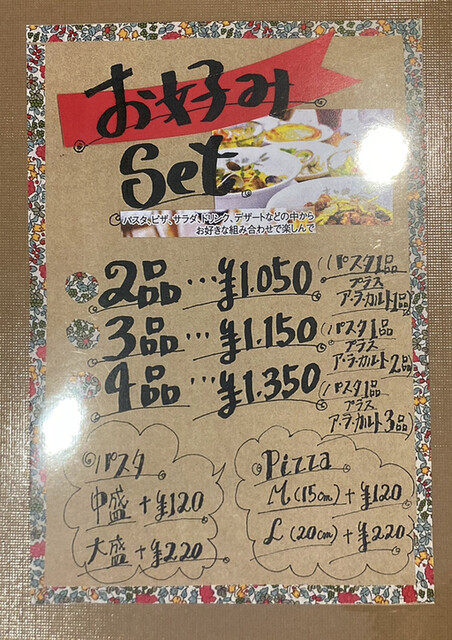 お好み
Set
パスタ、ピザ、サラダ、ドリンク、デザートなどの中から
お好きな組み合わせで楽しんで
2品…¥1.050 (パスタ1品
プラス
ア・ラ・カルト1品)
3品…¥1.150 (パスタ1品
プラス
ア・ラ・カルト2品)
4品…¥1.350 (パスタ1品
プラス
ア・ラ・カルト3品)
パスタ
中盛+¥120
大盛+¥220
Pizza
M(15cm)+¥120
L(20cm)+¥220